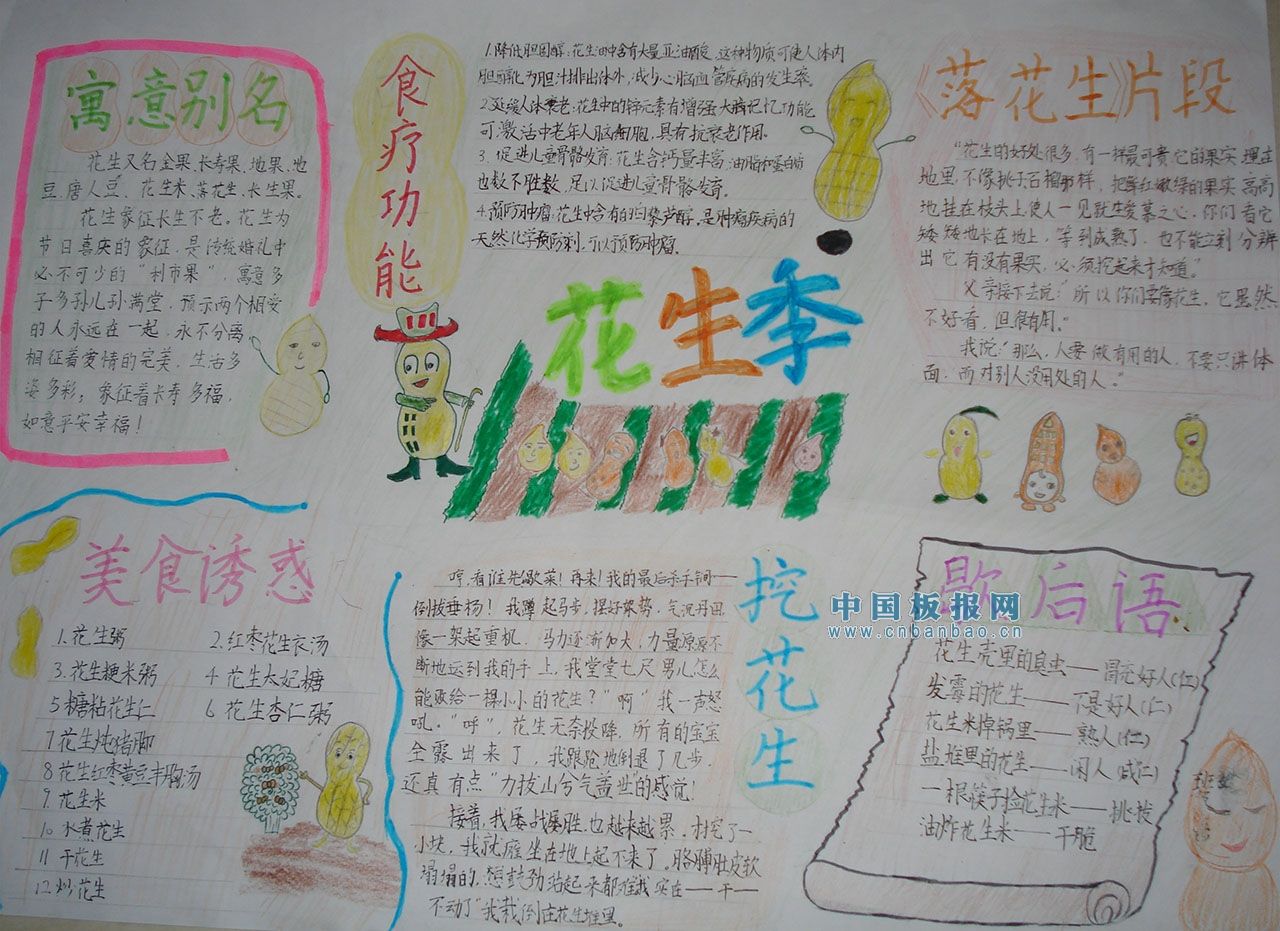 寓意别名
花生又名金果、长寿果、地果、地
豆、唐人豆、花生米、落花生、长生果。
花生象征长生不老。花生为
节日喜庆的象征，是传统婚礼中
必不可少的“利市果”，寓意多
子多孙儿孙满堂，预示两个相爱
的人永远在一起，永不分离
相征着爱情的完美，生活多
姿多彩；象征着长寿多福，
如意平安幸福！
食疗功能
1.降低胆固醇：花生油中含有大量亚油酸，这种物质可使人体内
胆醇化为胆汁排出体外，减少心脑血管疾病的发生率。
2.延缓人体衰老：花生中的锌元素有增强大脑记忆功能
可激活中老年人脑细胞，具有抗衰老作用。
3、促进儿童骨骼发育：花生含钙量丰富，油脂和蛋白质
也数不胜数，足以促进儿童骨骼发育。
4.预防肿瘤：花生中含有的白藜芦醇，是肿瘤疾病的
天然化学预防剂，可以预防肿瘤。
花生季
落花生片段
“花生的好处很多，有一样最可贵：它的果实埋在
地里，不像桃子石榴那样，把鲜红嫩绿的果实高高
地挂在枝头上，使人一见就生爱慕之心。你们看它
矮矮地长在地上，等到成熟了，也不能立刻分辨
出它有没有果实，必须挖起来才知道。”
父亲接下去说：“所以你们要像花生，它虽然
不好看，但很有用。”
我说：“那么，人要做有用的人，不要只讲体
面，而对别人没用处的人。”
美食诱惑
1.花生粥 2.红枣花生衣汤
3.花生粳米粥 4 花生太妃糖
5 糖粘花生仁 6 花生杏仁粥
7 花生炖猪脚
8 花生红枣黄豆丰胸汤
9. 花生米
10 水煮花生
11 干花生
12.炒花生
挖花生
哼，看谁先歇菜！再来！我的最后杀手锏——
倒拔垂杨！我蹲起马步，摆好架势，气沉丹田
像一架起重机，马力逐渐加大，力量源源不
断地运到我的手上，我堂堂七尺男儿怎么
能败给一棵小小的花生？“啊”我一声怒
吼。“呼”，花生无奈投降，所有的宝宝
全露出来了，我踉跄地倒退了几步，
还真有点“力拔山兮气盖世”的感觉！
接着，我屡战屡胜，也越来越累，才挖了一
小块，我就瘫坐在地上起不来了。胳膊肚皮软
塌塌的，想鼓劲站起来都难，我实在——干——
不动了”我栽倒在花生堆里。
歇后语
花生壳里的臭虫——冒充好人(仁)
发霉的花生——不是好人(仁)
花生米掉锅里——熟人(仁)
盐堆里的花生——闲人(咸仁)
一根筷子捡花生米——挑拨
油炸花生米——干脆
中国板报网
www.cnbanbao.cn